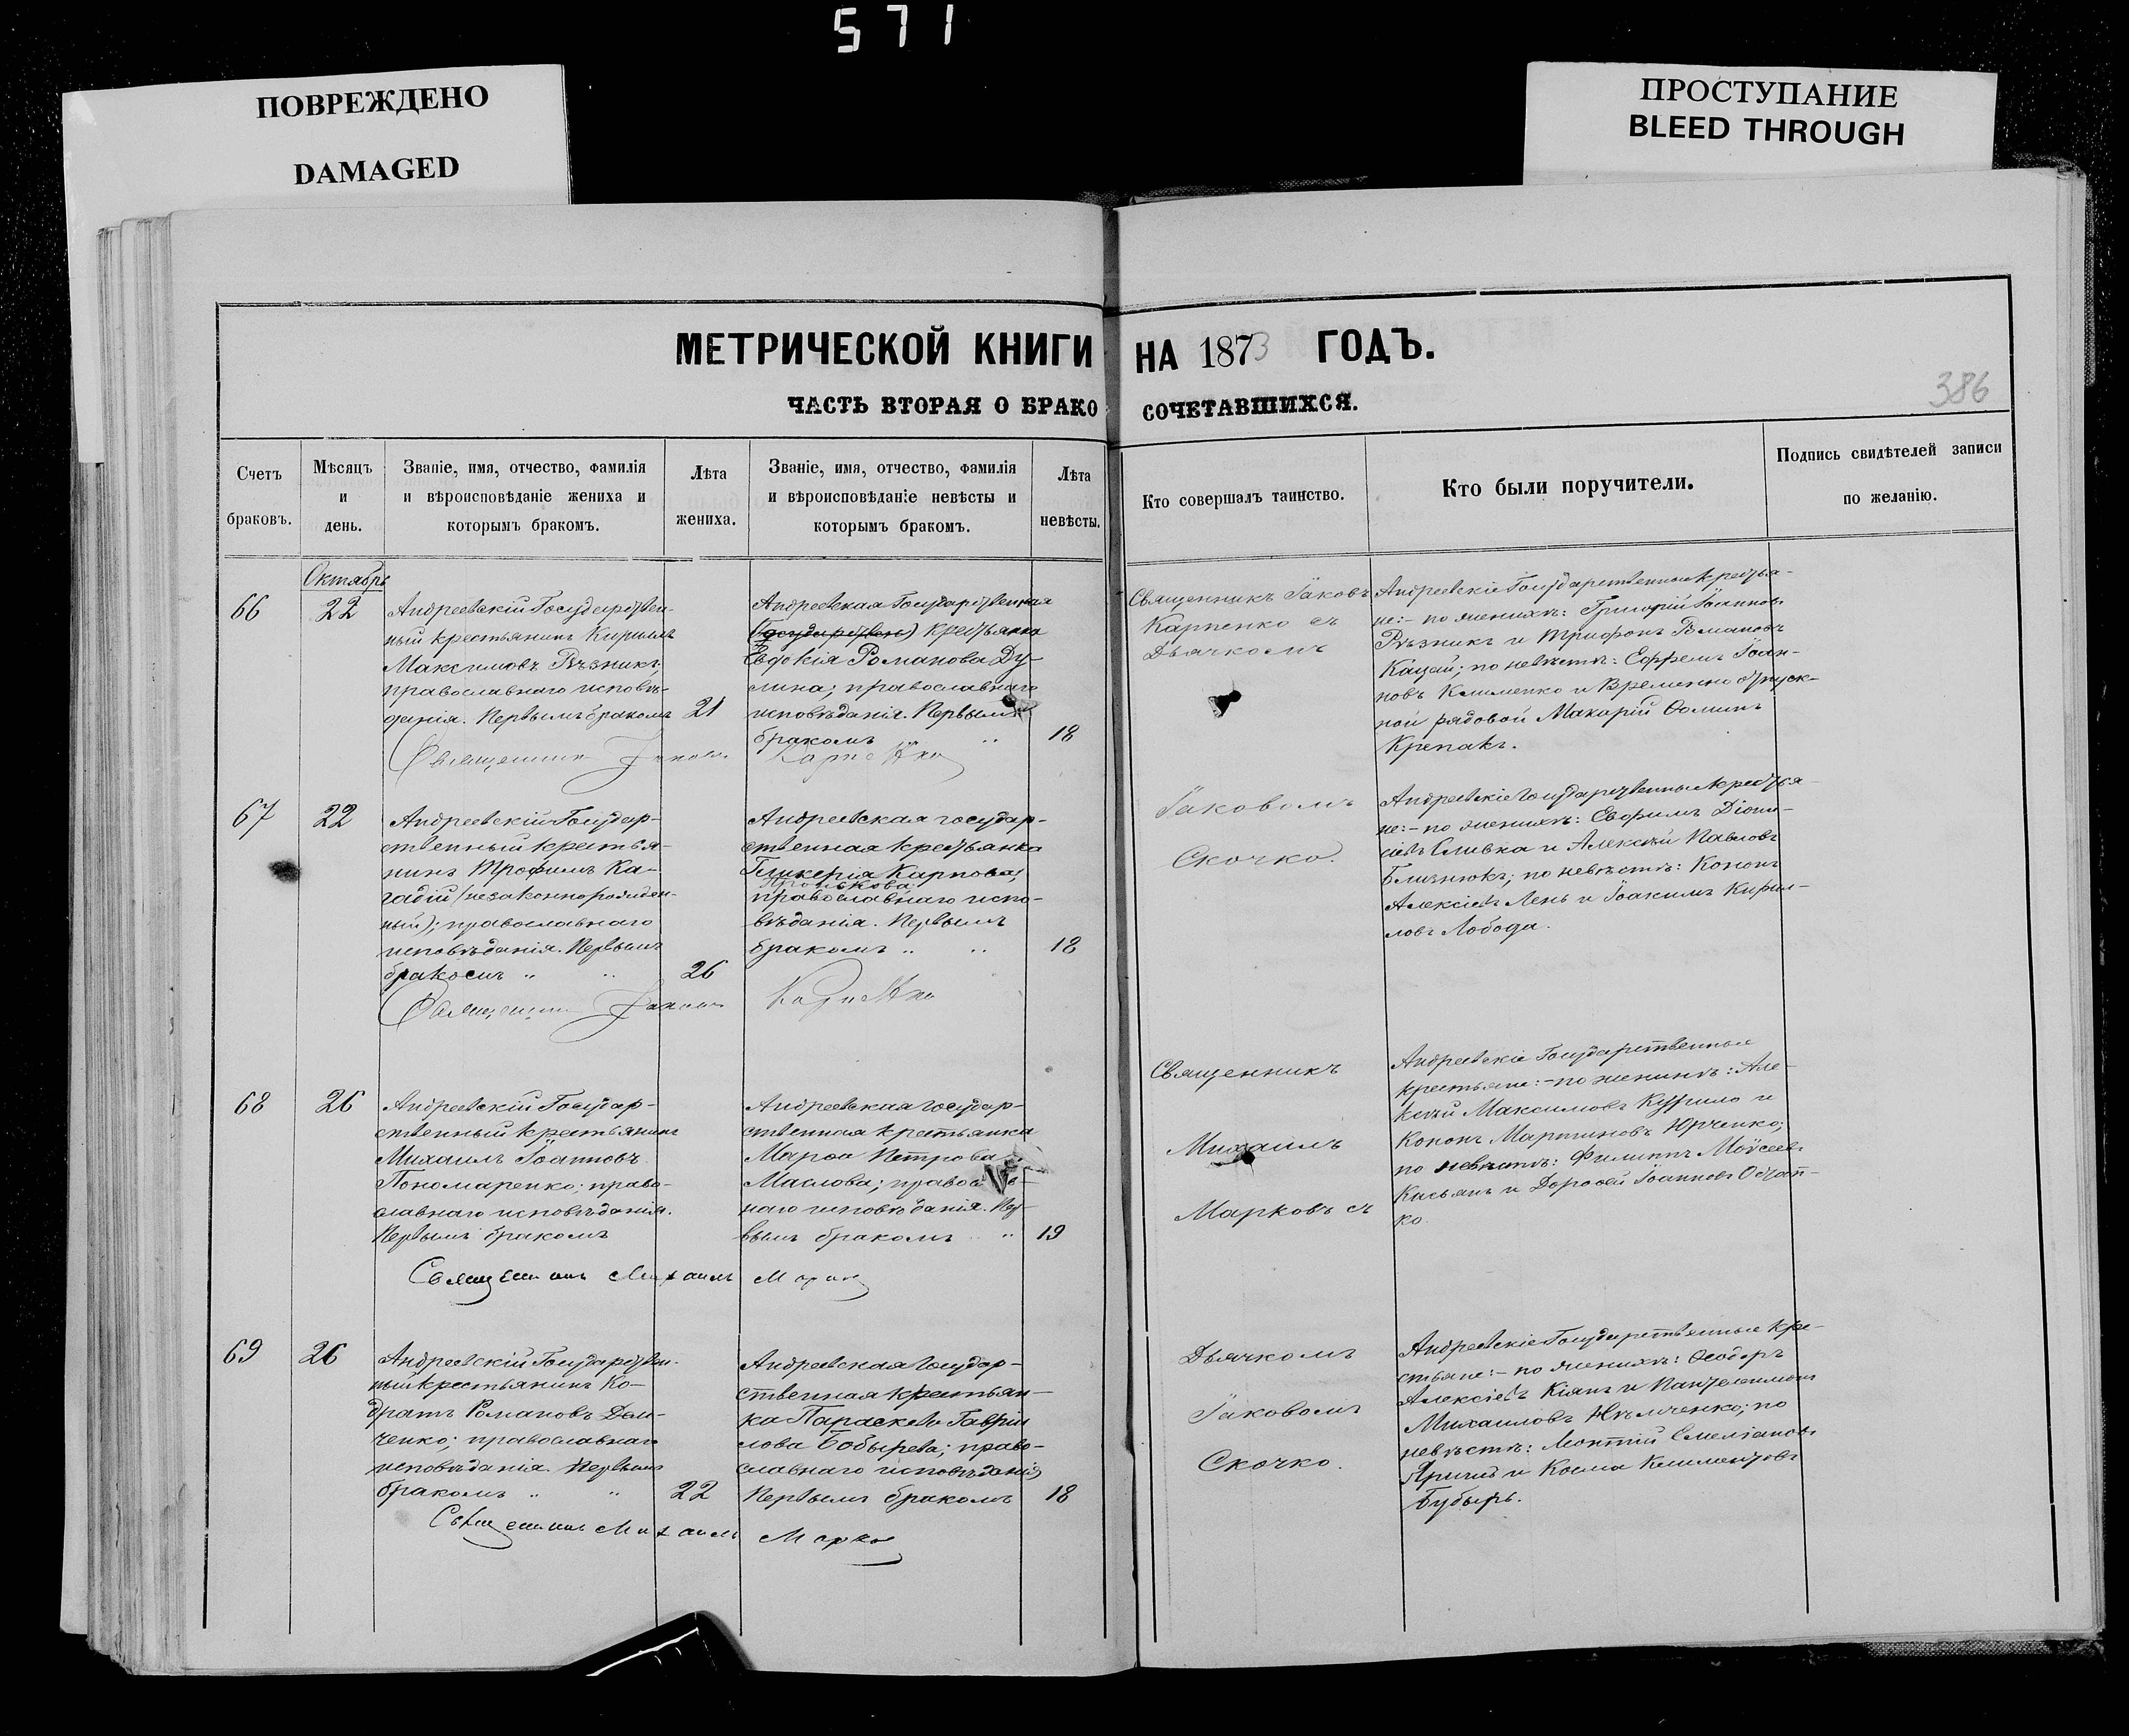 571
ПОВРЕЖДЕНО
DAMAGED
ПРОСТУПАНИЕ
BLEED THROUGH
МЕТРИЧЕСКОЙ КНИГИ НА 1873 ГОДЪ.
ЧАСТЬ ВТОРАЯ О БРАКОСОЧЕТАВШИХСЯ.
386
Счетъ
браковъ.
Мѣсяцъ
и
день.
Званіе, имя, отчество, фамилія
и вѣроисповѣданіе жениха и
которымъ бракомъ.
Лѣта
жениха.
Званіе, имя, отчество, фамилія
и вѣроисповѣданіе невѣсты и
которымъ бракомъ.
Лѣта
невѣсты.
Кто совершалъ таинство.
Кто были поручители.
Подпись свидѣтелей записи
по желанію.
Октябрь
66
22
Андреевскій Государствен-
ный крестьянинъ Кириллъ
Максимовъ Рѣзникъ;
православнаго исповѣ-
данія. Первымъ бракомъ
21
Андреевская Государственная
(Государствен) крестьянка
Евдокія Романова Ду-
лина; православнаго
исповѣданія. Первымъ
бракомъ
18
Священникъ Іаковъ Карпенко
Священникъ Іаковъ
Карпенко съ
Дьячкомъ
Андреевскіе Государственные крестья-
не:- по женихѣ: Григорій Іоанновъ
Рѣзникъ и Трифонъ Романовъ
Кацай; по невѣстѣ: Ефремъ Іоан-
новъ Клименко и Временно отпуск-
ной рядовой Макарій Ѳоминъ
Крепакъ.
67
22
Андреевскій Государ-
ственный крестья-
нинъ Трофимъ Ка-
гадій (незаконнорожден-
ный); православнаго
исповѣданія. Первымъ
бракомъ
26
Андреевская государ-
ственная крестьянка
Гликерія Карпова
Пронькова;
православнаго испо-
вѣданія. Первымъ
бракомъ
18
Священникъ Іаковъ Карпенко
Іаковомъ
Скочко.
Андреевскіе Государственные крестья-
не:- по женихѣ: Евфимъ Діони-
сіевъ Сливка и Алексѣй Павловъ
Близнюкъ; по невѣстѣ: Кононъ
Алексіевъ Лень и Іоакимъ Кирил-
ловъ Лобода.
68
26
Андреевскій Государ-
ственный крестьянинъ
Михаилъ Іоанновъ
Пономаренко; право-
славнаго исповѣданія.
Первымъ бракомъ
Андреевская государ-
ственная крестьянка
Марѳа Петрова
Маслова; православ-
наго исповѣданія. Пер-
вымъ бракомъ
19
Священникъ Михаилъ Марковъ
Священникъ
Михаилъ
Марковъ съ
Андреевскіе Государственные
крестьяне:- по женихѣ: Але-
ксѣй Максимовъ Курило и
Кононъ Мартиновъ Юрченко;
по невѣстѣ: Филиппъ Моѵсеевъ
Касьянъ и Дороѳей Іоанновъ Остап-
ко.
69
26
Андреевскій Государствен-
ный крестьянинъ Ко-
дратъ Романовъ Дем-
ченко; православнаго
исповѣданія. Первымъ
бракомъ
22
Андреевская Государ-
ственная крестьян-
ка Параскева Гаврiи-
лова Бобырева; право-
славнаго исповѣданія
Первымъ бракомъ
18
Священникъ Михаилъ Марковъ
Дьячкомъ
Іаковомъ
Скочко.
Андреевскіе Государственные кре-
стьяне:- по женихѣ: Ѳеодоръ
Алексіевъ Кіянъ и Пантелеимонъ
Михаиловъ Нѣмченко; по
невѣстѣ: Леонтій Емеліановъ
и Косма Климентовъ
Бубырь.